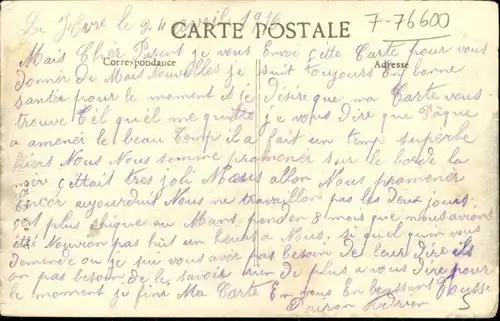 Le Havre le 24 avril 1916
CARTE POSTALE
7-76600
Mais Cher Parent je vous Envoi cette Carte pour vous
Correspondance
Adresse
donner de Mais Nouvelles je suit toujours En bonne
santer pour le moment et je désire que ma Carte vous
trouve Tél quél me quitte je vous dire que Pâque
a amener le beau temp il a fait un temp superbe
hiers Nous Nous somme promener sur le bord de la
mér cettait tres joli Nous allon Nous promener
Encor aujourduit Nous ne travallon pas les deux jours
cest plus chique au Mans penden 8 mois que nous avions
été Nouvion pas hüt un heure a Nous. si quel qu'un vous
demende ou je sui vous aver pas besoin de leur dire ils
on pas besoin de le savoir rien de plus a vous dire pour
le moment je finé Ma Carte En vous En brassant tousse
5